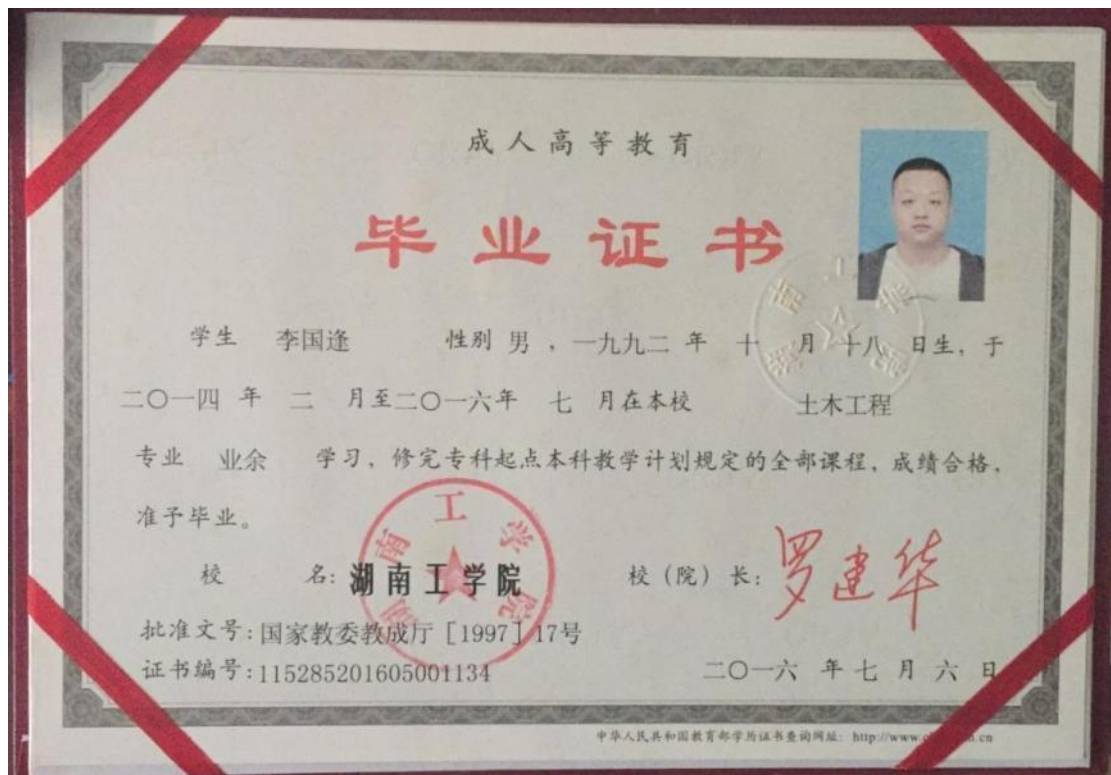 成人高等教育
毕业证书
学生 李国逢 性别 男 ，一九九二 年 十 月 十八 日生，于
二〇一四 年 二 月至二〇一六年 七 月在本校 土木工程
专业 业余 学习，修完专科起点本科教学计划规定的全部课程，成绩合格，
准予毕业。
校 名：湖南工学院 校（院）长：罗建华
湖南工学院
湖南工学院
批准文号：国家教委教成厅［1997］17号
证书编号：115285201605001134
二〇一六 年 七 月 六 日
中华人民共和国教育部学历证书查询网址：http://www.